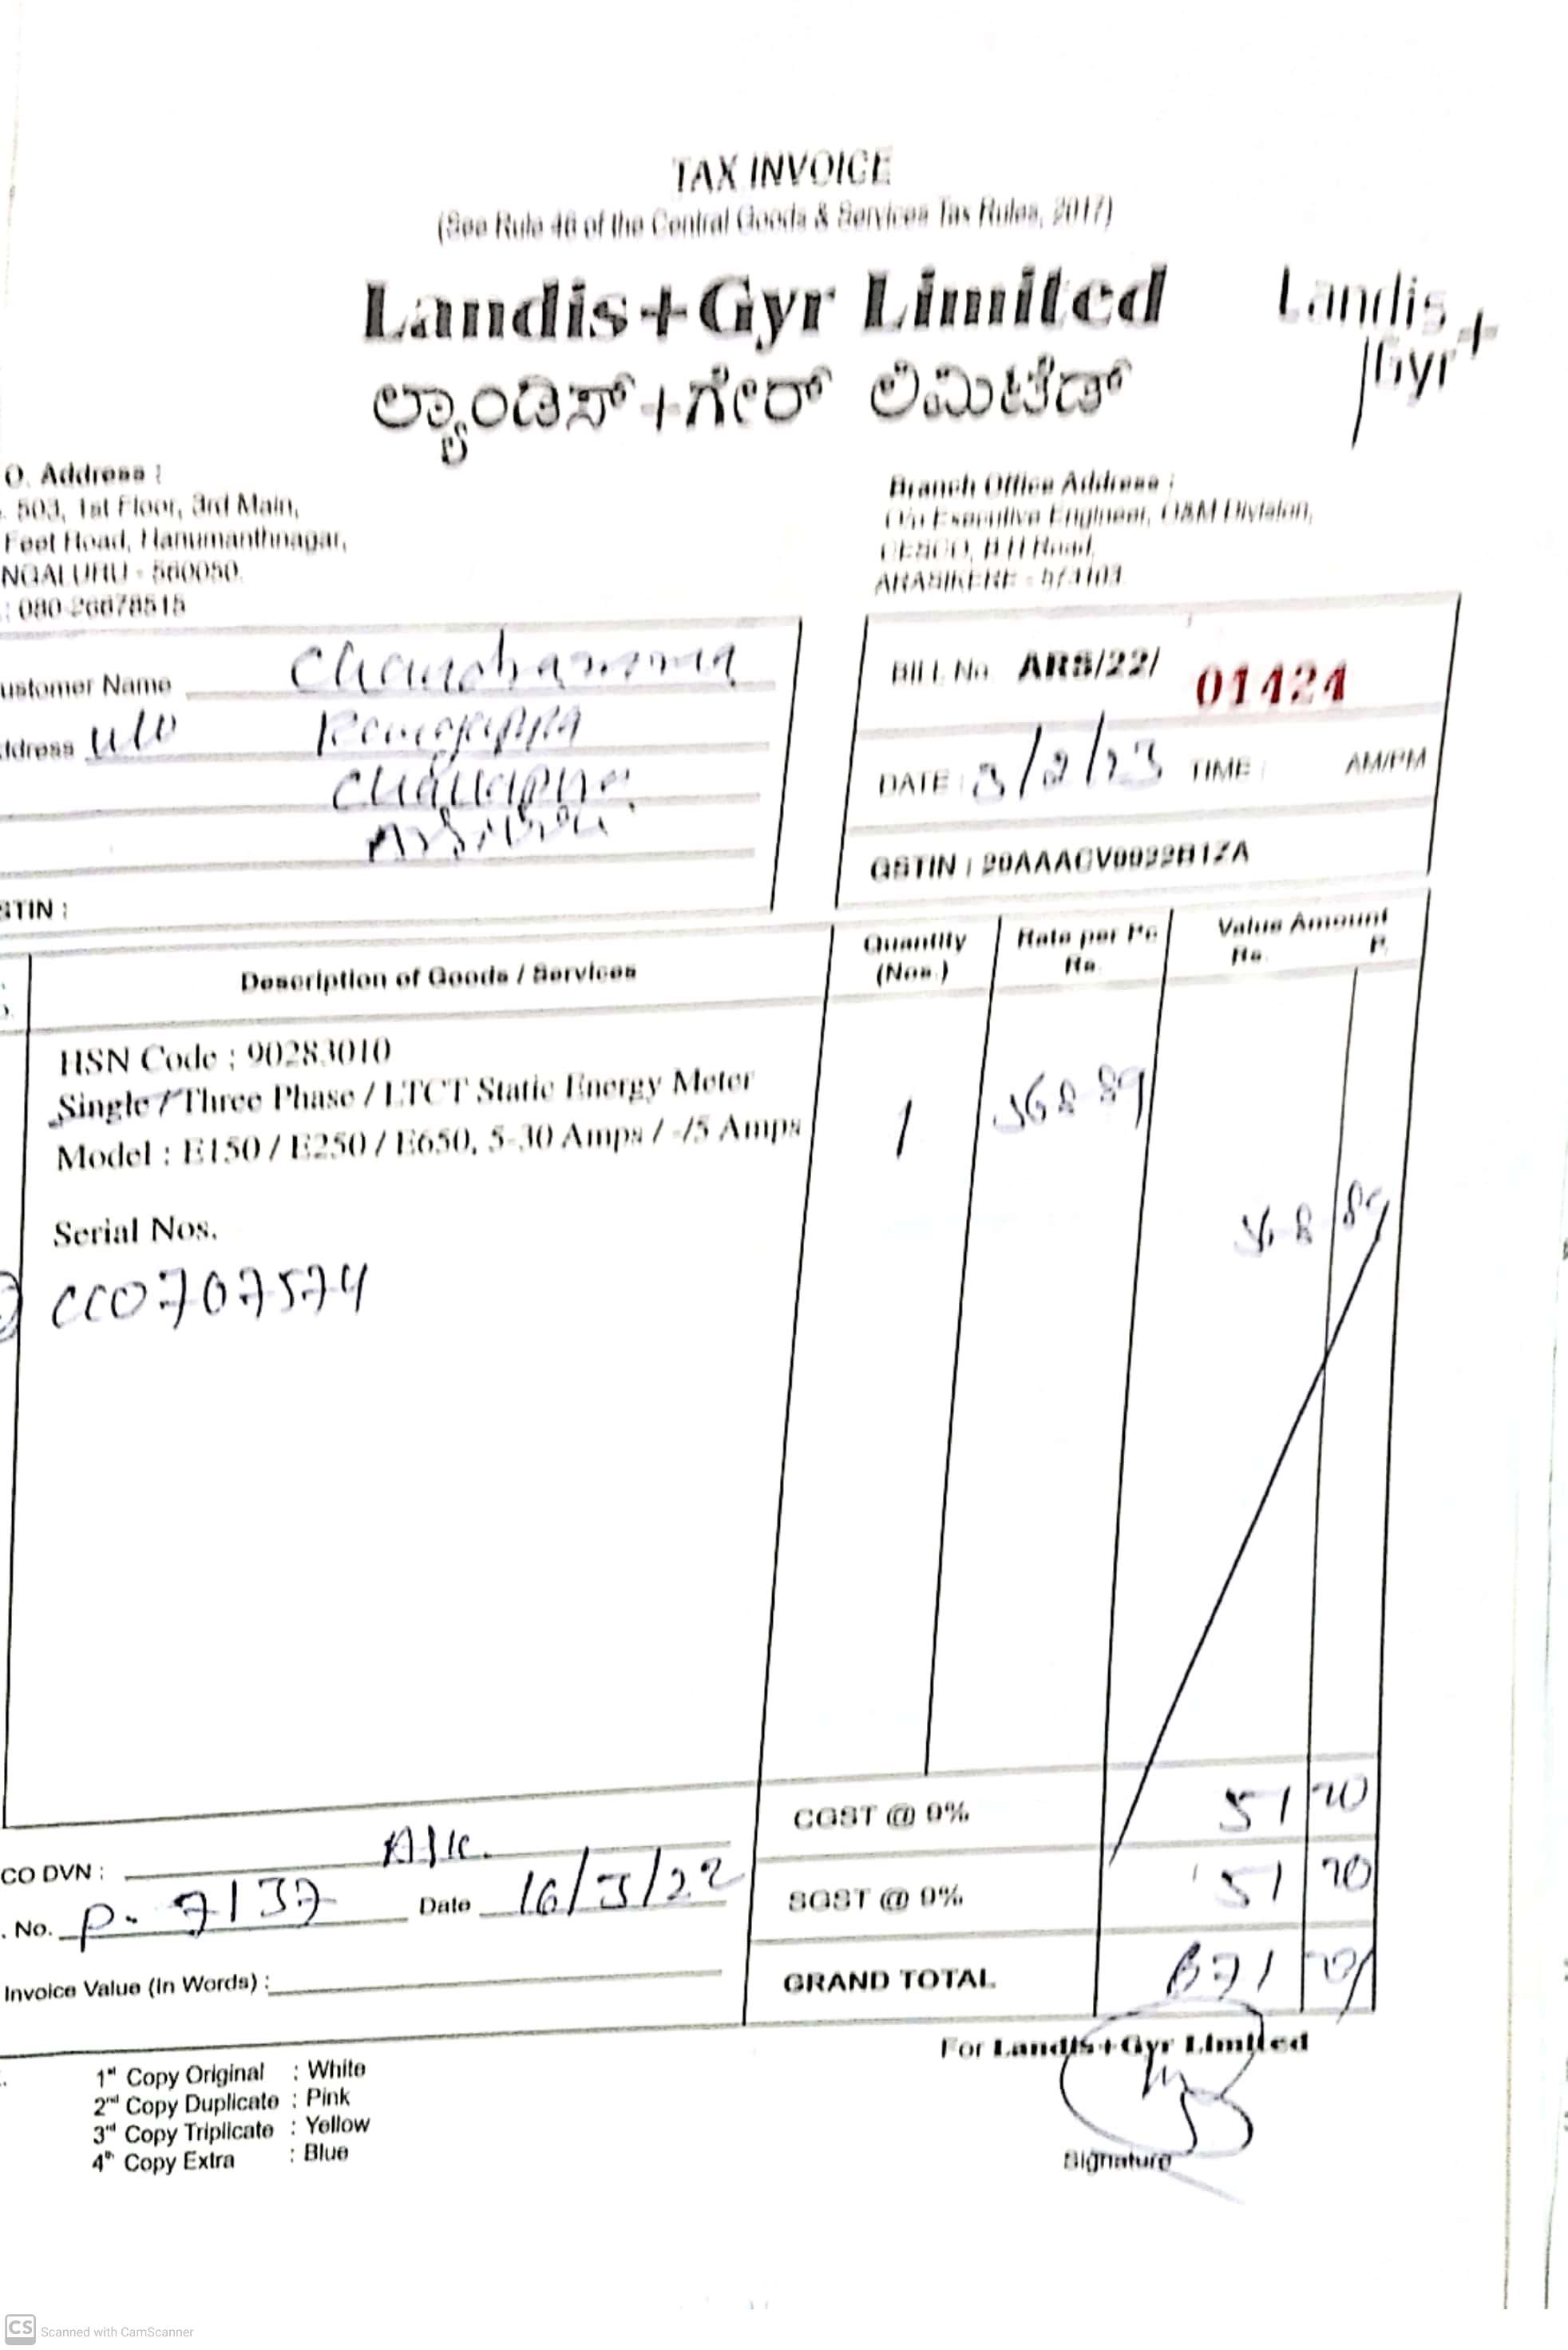 TAX INVOICE
(See Rule 46 of the Central Goods & Services Tax Rules, 2017)
Landis+Gyr Limited
ಲ್ಯಾಂಡಿಸ್+ಗೇರ್ ಲಿಮಿಟೆಡ್
Landis
Gyr+
O. Address :
503, 1st Floor, 3rd Main,
Feet Road, Hanumanthnagar,
NGALURU - 560050.
: 080-26678515
Branch Office Address :
O/o Executive Engineer, O&M Division,
CESCO, B H Road,
ARASIKERE - 573103
ustomer Name
ddress
STIN :
BILL No. ARS/22/ 01424
DATE : 3/2/23 TIME : AM/PM
GSTIN : 29AAACV0922B1ZA
Description of Goods / Services
Quantity (Nos.)
Rate per Pc Rs.
Value Amount
Rs. P.
HSN Code : 90283010
Single / Three Phase / LTCT Static Energy Meter
Model : E150 / E250 / E650, 5-30 Amps / -/5 Amps
1
568 89
568 89
Serial Nos.
CC0707574
CGST @ 9% 51 20
SGST @ 9% 51 20
GRAND TOTAL 671
CO DVN :
. No. P. 7137 Date 16/3/22
Invoice Value (In Words) :
For Landis+Gyr Limited
Signature
1st Copy Original : White
2nd Copy Duplicate : Pink
3rd Copy Triplicate : Yellow
4th Copy Extra : Blue
CS Scanned with CamScanner